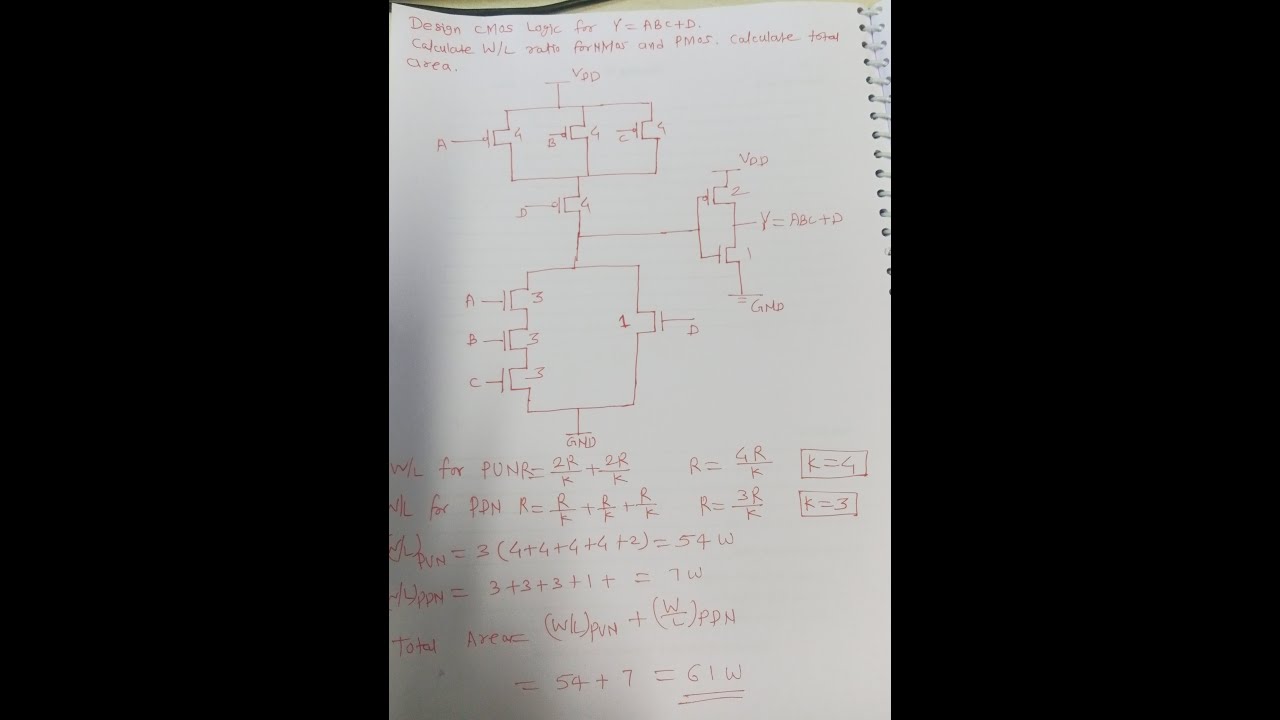 Design CMOS Logic for Y = ABC+D.
Calculate W/L ratio for NMOS and PMOS. Calculate total
area.
VDD
A 4 B 4 C 4
D 4
VDD
2
Y = ABC+D
1
GND
A 3
B 3
C 3
1 D
GND
W/L for PUN R = 2R/K + 2R/K R = 4R/K K=4
W/L for PDN R = R/K + R/K + R/K R = 3R/K K=3
(W/L)PUN = 3(4+4+4+4+2) = 54 W
(W/L)PDN = 3+3+3+1+ = 7W
Total Area = (W/L)PUN + (W/L)PDN
= 54 + 7 = 61W